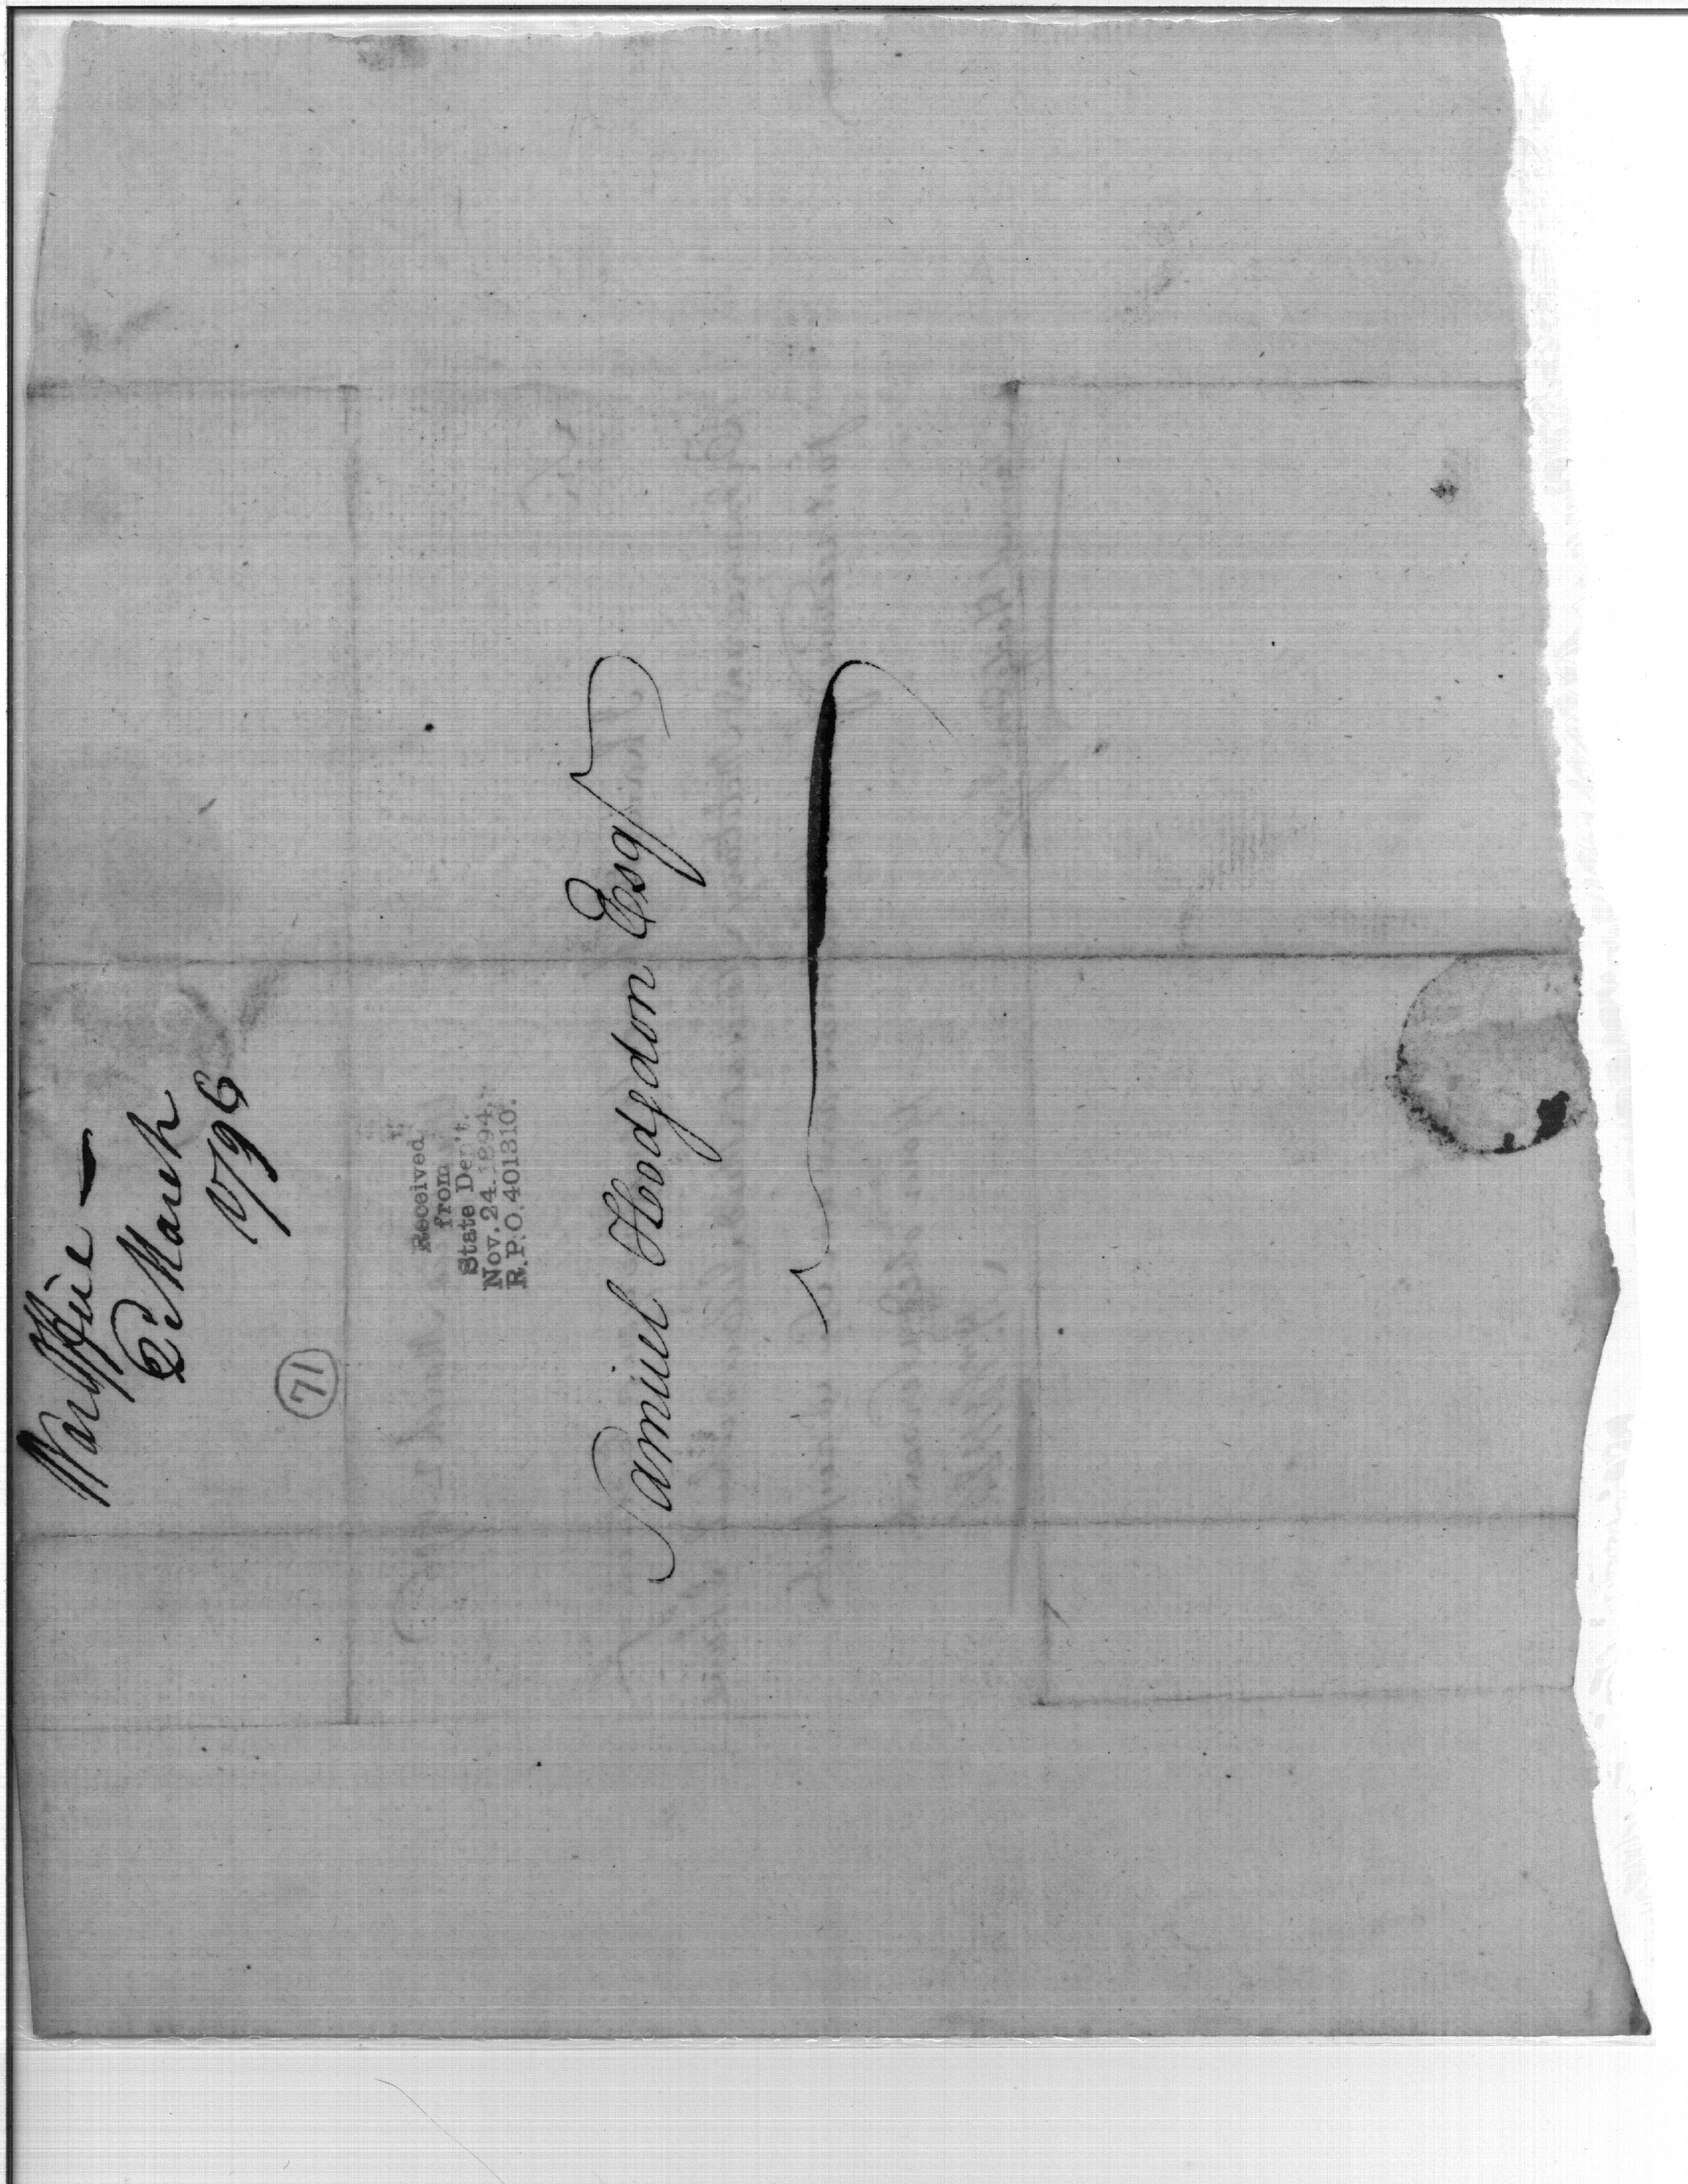 War Office —
2d March
1796
71
Received
from
State Dep't.
Nov. 24. 1894,
R.P.O. 401310.
Samuel Hodgdon Esqr